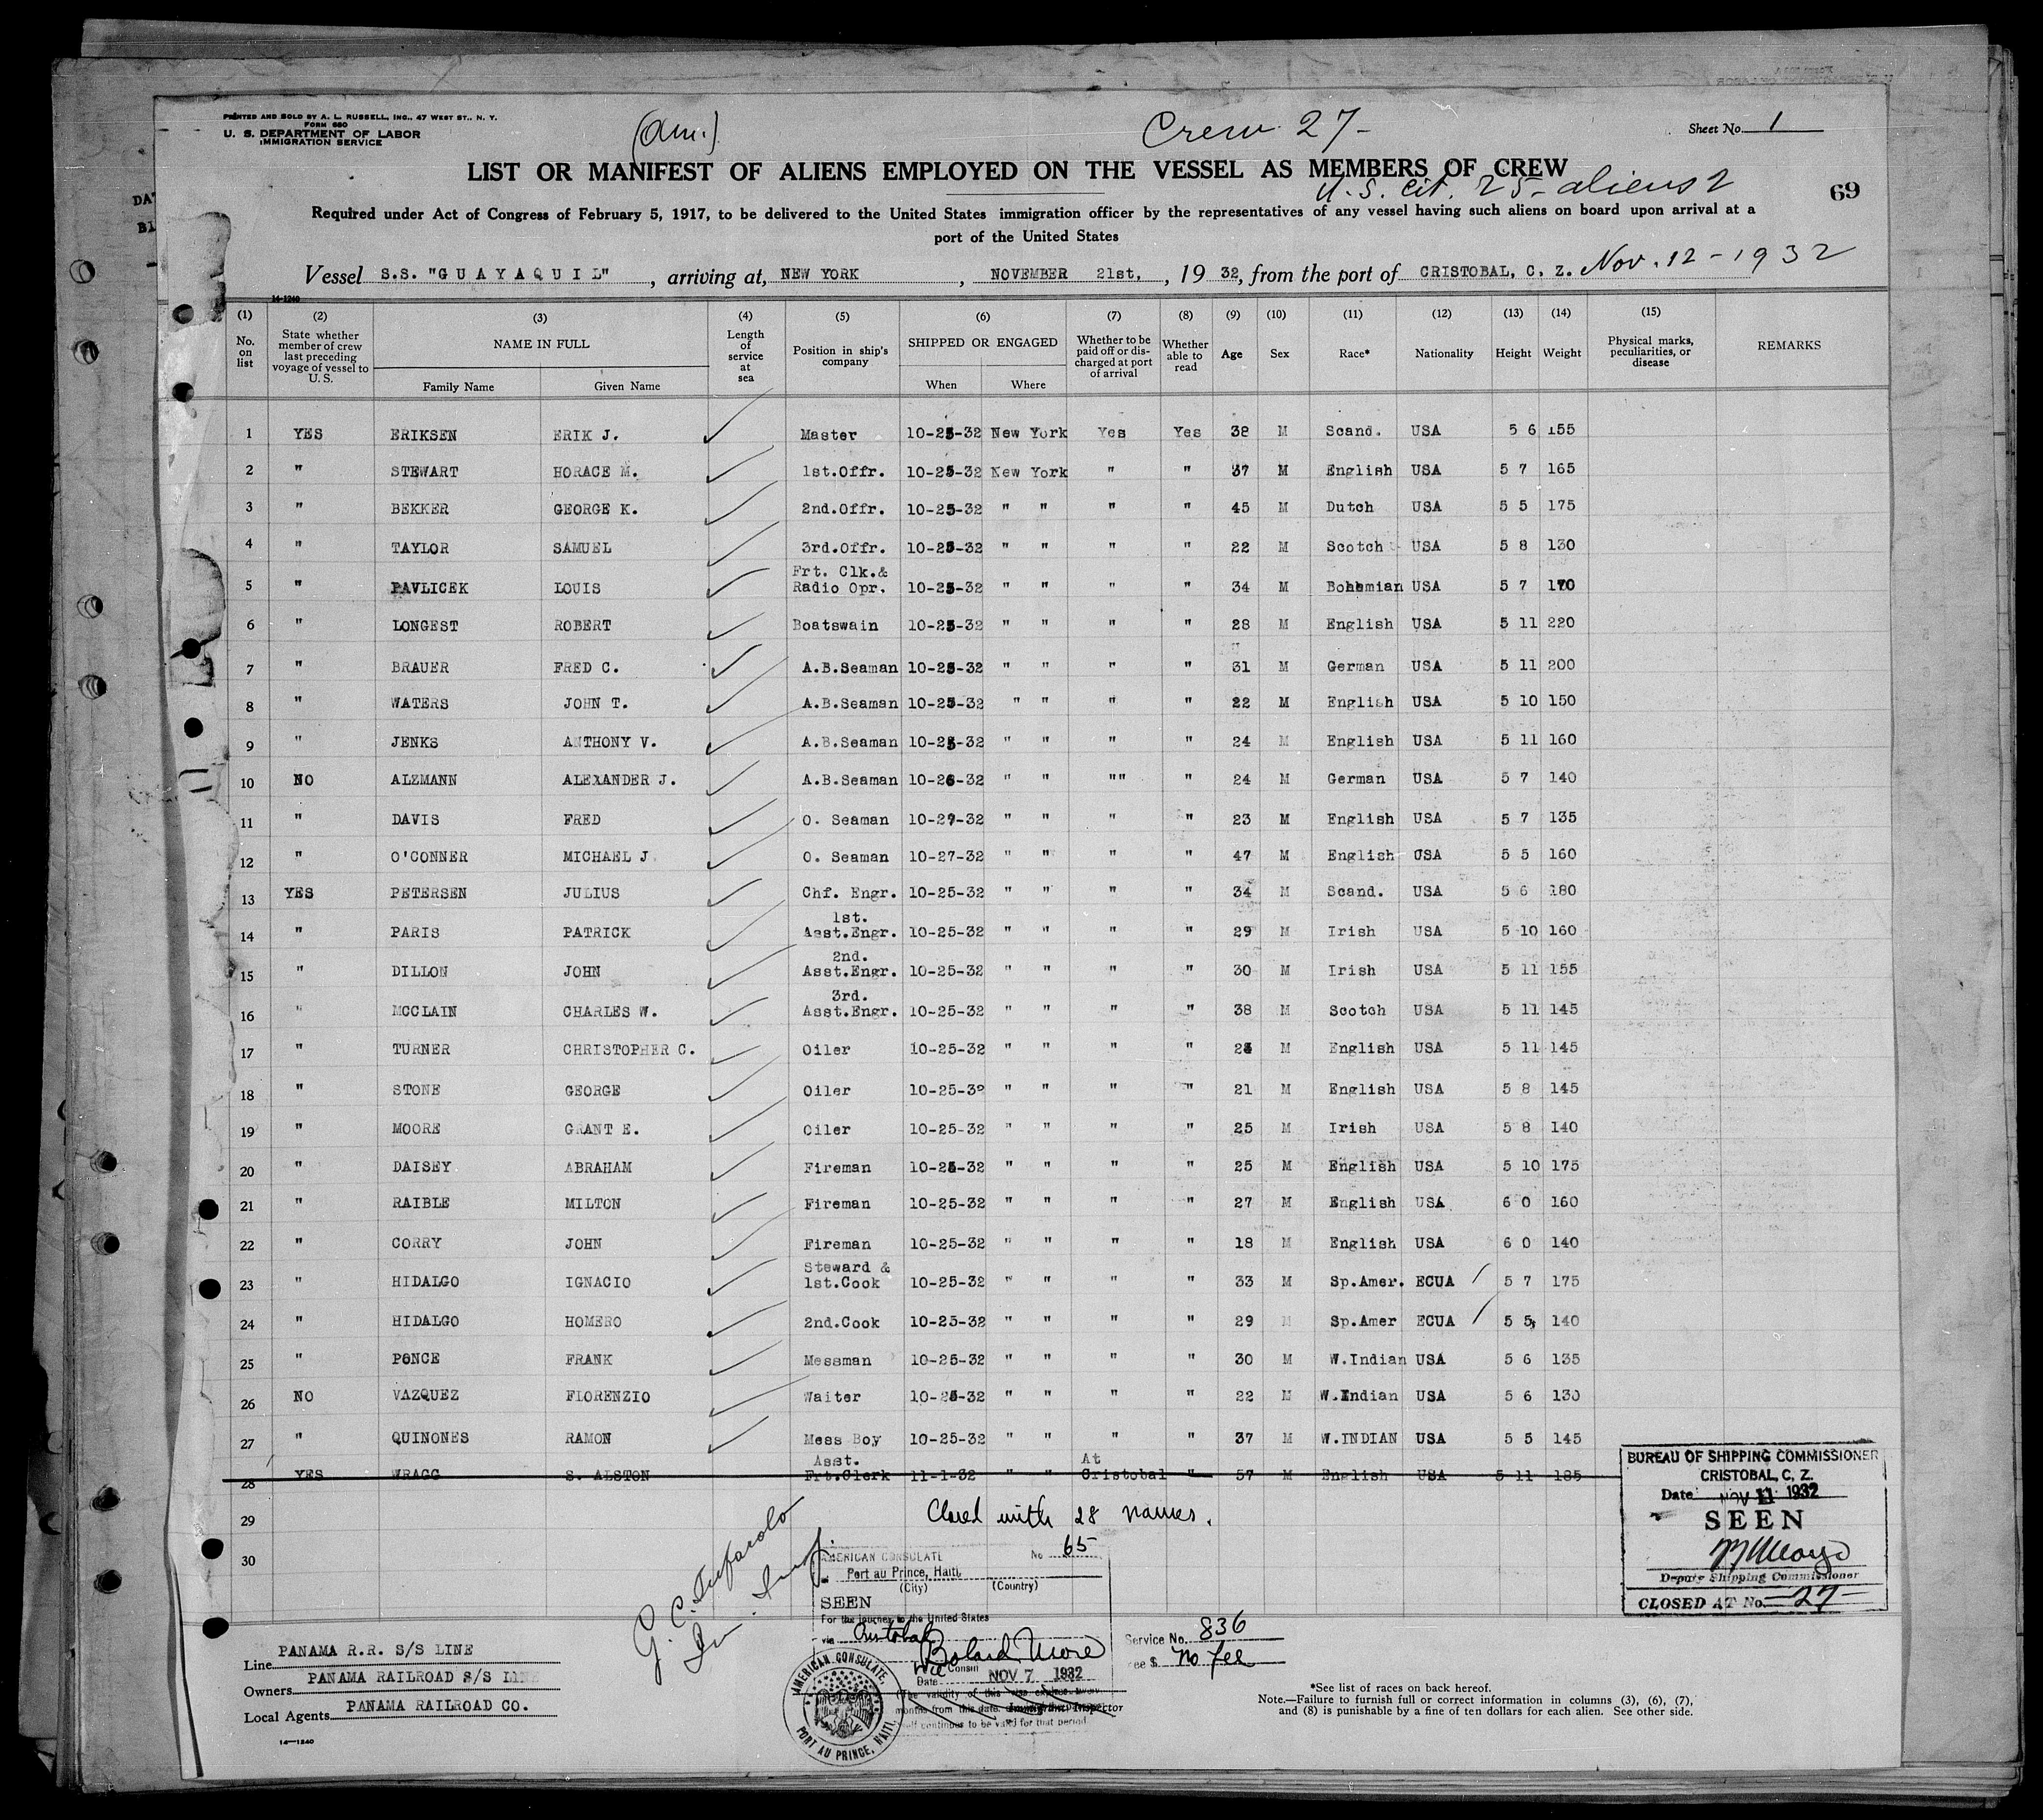 PRINTED AND SOLD BY A. L. RUSSELL, INC., 47 WEST ST., N. Y.
FORM 680
U. S. DEPARTMENT OF LABOR
IMMIGRATION SERVICE
(Am.)
Crew 27-
Sheet No. 1
LIST OR MANIFEST OF ALIENS EMPLOYED ON THE VESSEL AS MEMBERS OF CREW
U.S. cit. 25- aliens 2
69
Required under Act of Congress of February 5, 1917, to be delivered to the United States immigration officer by the representatives of any vessel having such aliens on board upon arrival at a
port of the United States
Vessel S.S. "GUAYAQUIL", arriving at, NEW YORK, NOVEMBER 21st, 1932, from the port of CRISTOBAL, C. Z. Nov. 12-1932
14-1240
(1) (2) (3) (4) (5) (6) (7) (8) (9) (10) (11) (12) (13) (14) (15)
No. on list
State whether member of crew last preceding voyage of vessel to U. S.
NAME IN FULL
Family Name
Given Name
Length of service at sea
Position in ship's company
SHIPPED OR ENGAGED
When
Where
Whether to be paid off or discharged at port of arrival
Whether able to read
Age
Sex
Race*
Nationality
Height
Weight
Physical marks, peculiarities, or disease
REMARKS
1 YES ERIKSEN ERIK J. Master 10-25-32 New York Yes Yes 38 M Scand. USA 5 6 155
2 " STEWART HORACE M. 1st.Offr. 10-25-32 New York " " 37 M English USA 5 7 165
3 " BEKKER GEORGE K. 2nd.Offr. 10-25-32 " " " " 45 M Dutch USA 5 5 175
4 " TAYLOR SAMUEL 3rd.Offr. 10-25-32 " " " " 22 M Scotch USA 5 8 130
5 " PAVLICEK LOUIS Frt. Clk.& Radio Opr. 10-25-32 " " " " 34 M Bohemian USA 5 7 170
6 " LONGEST ROBERT Boatswain 10-25-32 " " " " 28 M English USA 5 11 220
7 " BRAUER FRED C. A.B.Seaman 10-25-32 " " " " 31 M German USA 5 11 200
8 " WATERS JOHN T. A.B.Seaman 10-25-32 " " " " 22 M English USA 5 10 150
9 " JENKS ANTHONY V. A.B.Seaman 10-25-32 " " " " 24 M English USA 5 11 160
10 NO ALZMANN ALEXANDER J. A.B.Seaman 10-26-32 " " "" " 24 M German USA 5 7 140
11 " DAVIS FRED O. Seaman 10-27-32 " " " " 23 M English USA 5 7 135
12 " O'CONNER MICHAEL J O. Seaman 10-27-32 " " " " 47 M English USA 5 5 160
13 YES PETERSEN JULIUS Chf. Engr. 10-25-32 " " " " 34 M Scand. USA 5 6 180
14 " PARIS PATRICK 1st. Asst.Engr. 10-25-32 " " " " 29 M Irish USA 5 10 160
15 " DILLON JOHN 2nd. Asst.Engr. 10-25-32 " " " " 30 M Irish USA 5 11 155
16 " MCCLAIN CHARLES W. 3rd. Asst.Engr. 10-25-32 " " " " 38 M Scotch USA 5 11 145
17 " TURNER CHRISTOPHER C. Oiler 10-25-32 " " " " M English USA 5 11 145
18 " STONE GEORGE Oiler 10-25-32 " " " " 21 M English USA 5 8 145
19 " MOORE GRANT E. Oiler 10-25-32 " " " " 25 M Irish USA 5 8 140
20 " DAISEY ABRAHAM Fireman 10-25-32 " " " " 25 M English USA 5 10 175
21 " RAIBLE MILTON Fireman 10-25-32 " " " " 27 M English USA 6 0 160
22 " CORRY JOHN Fireman 10-25-32 " " " " 18 M English USA 6 0 140
23 " HIDALGO IGNACIO Steward & 1st.Cook 10-25-32 " " " " 33 M Sp.Amer. ECUA 5 7 175
24 " HIDALGO HOMERO 2nd.Cook 10-25-32 " " " " 29 M Sp.Amer ECUA 5 5 140
25 " PONCE FRANK Messman 10-25-32 " " " " 30 M W.Indian USA 5 6 135
26 NO VAZQUEZ FLORENZIO Waiter 10-25-32 " " " " 22 M W.Indian USA 5 6 130
27 " QUINONES RAMON Mess Boy 10-25-32 " " " " 37 M W.INDIAN USA 5 5 145
28 YES WRAGG S. ALSTON Asst. Frt.Clerk 11-1-32 " " At Cristobal " 57 M English USA 5 11 185
29
30
Closed with 28 names.
BUREAU OF SHIPPING COMMISSIONER
CRISTOBAL, C. Z.
Date NOV 11 1932
SEEN
Deputy Shipping Commissioner
CLOSED AT No. 27
AMERICAN CONSULATE No 65
Port au Prince, Haiti,
(City) (Country)
SEEN
For the journey to the United States
via Cristobal
Vice Consul
Date NOV 7 1932
(The validity of this visa expires twelve
months from this date. Immigrant Inspector
self continues to be valid for that period.
AMERICAN CONSULATE,
PORT AU PRINCE, HAITI.
Service No. 836
Fee $ No fee
G. C.
Line PANAMA R.R. S/S LINE
Owners PANAMA RAILROAD S/S LINE
Local Agents PANAMA RAILROAD CO.
14-1240
*See list of races on back hereof.
Note.—Failure to furnish full or correct information in columns (3), (6), (7),
and (8) is punishable by a fine of ten dollars for each alien. See other side.